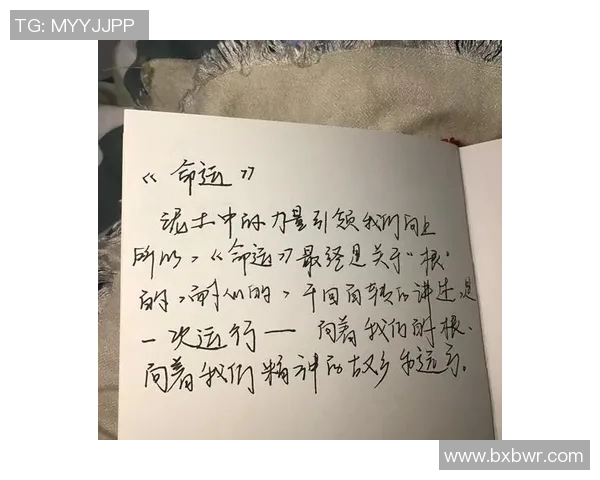 TG: MYYJJPP
《命运》
泥土中的力量引领我们向上
所以,《命运》最终是关于“根”
的,耐人的,千回百转的讲述,是
一次运行— 向着我们的根、
向着我们精神的故乡和远方。
www.bxbwr.com